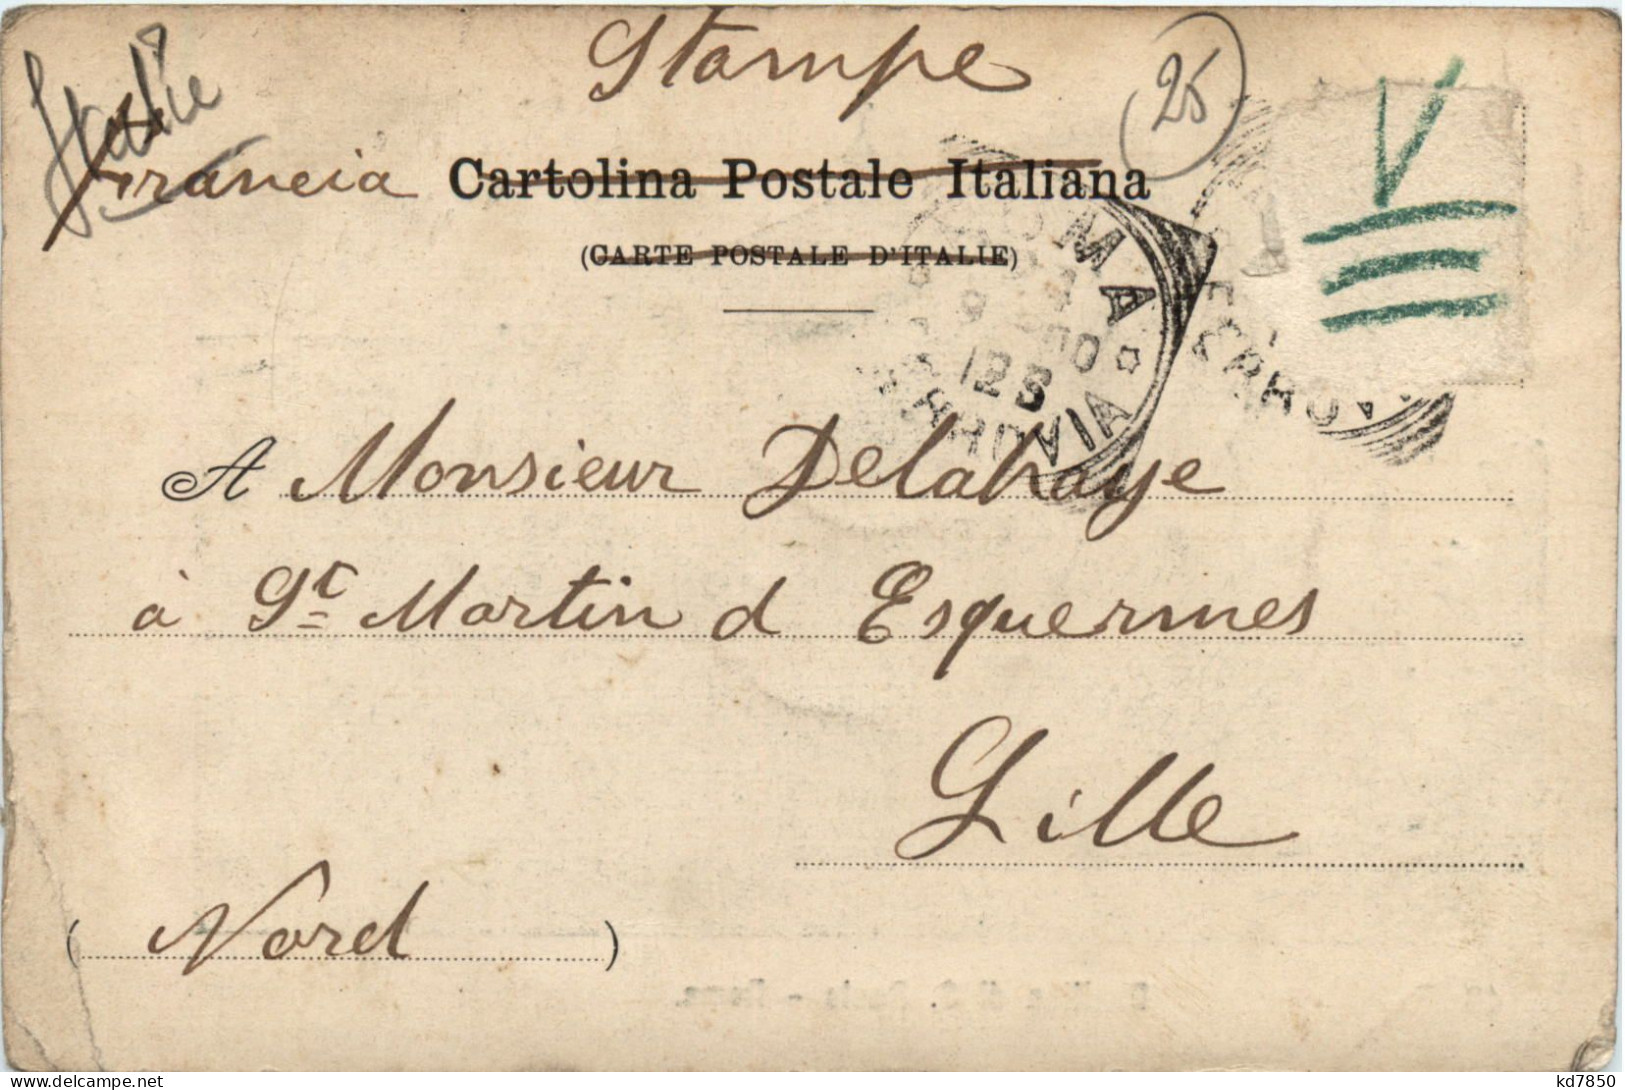 Stampe
25
Italie
Francia Cartolina Postale Italiana
(CARTE POSTALE D'ITALIE)
ROMA
9
12 S
FERROVIA
FERROVIA
A Monsieur Delahaye
à St Martin d Esquermes
Lille
(Nord)
kd7850